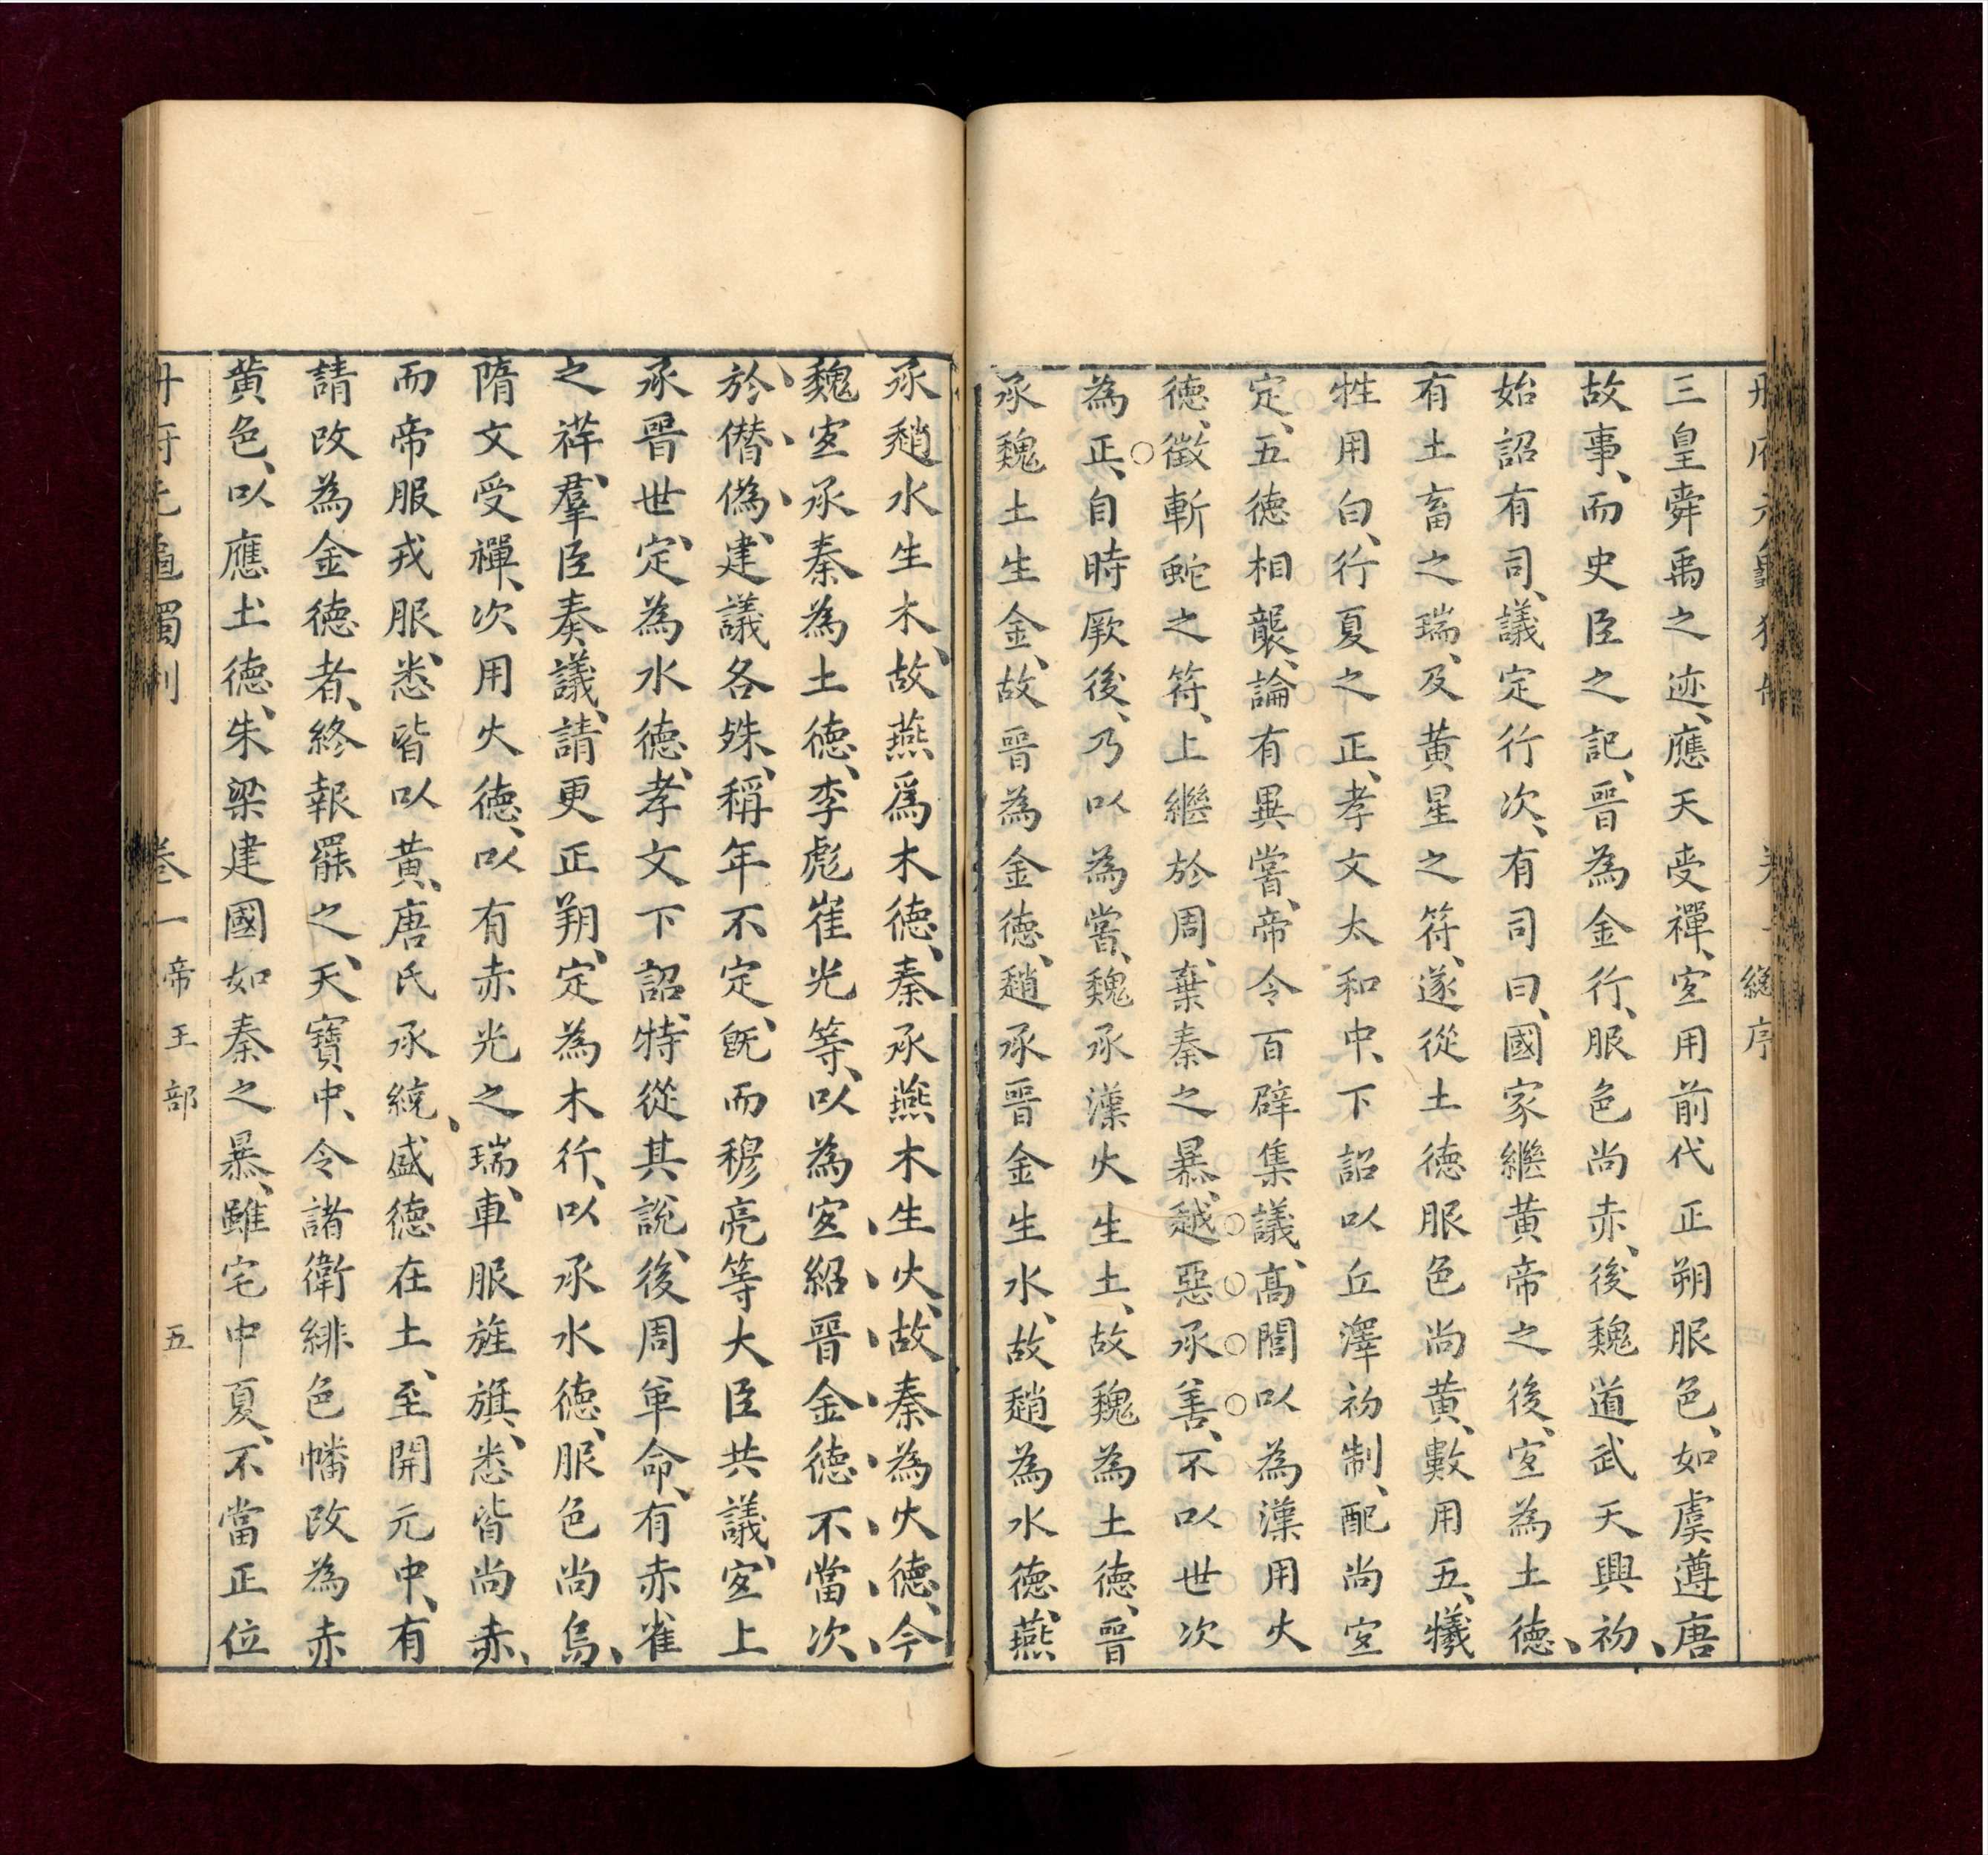 冊府元龜獨制 卷一 總序
三皇舜禹之迹、應天受禪、宜用前代正朔服色、如虞遵唐
故事、而史臣之記、晉為金行、服色尚赤、後魏道武天興初、
始詔有司、議定行次、有司曰、國家繼黃帝之後、宜為土德、
有土畜之瑞、及黃星之符、遂從土德服色尚黃、數用五、犧
牲用白、行夏之正、孝文太和中、下詔以丘澤初制、配尚宜
定、五德相襲、論有異嘗、帝令百辟集議、高閭以為漢用火
德、徵斬蛇之符、上繼於周、棄秦之暴、越惡承善、不以世次
為正、自時厥後、乃以為嘗、魏承漢火生土、故魏為土德、晉
承魏土生金、故晉為金德、趙承晉金生水、故趙為水德、燕
承趙水生木、故燕爲木德、秦承燕木生火、故秦為火德、今
魏宜承秦為土德、李彪崔光等、以為宜紹晉金德不當次
於僭僞、建議各殊、稱年不定、既而穆亮等大臣共議、宜上
承晉世、定為水德、孝文下詔、特從其說、後周革命、有赤雀
之祥、羣臣奏議、請更正朔、定為木行、以承水德、服色尚烏、
隋文受禪、次用火德、以有赤光之瑞、車服旌旗、悉皆尚赤、
而帝服戎服、悉皆以黃、唐氏承統、盛德在土、至開元中、有
請改為金德者、終報罷之、天寶中、令諸衛緋色幡改為赤
黃色、以應土德、朱梁建國如秦之暴、雖宅中夏、不當正位
冊府元龜獨制 卷一 帝王部 五